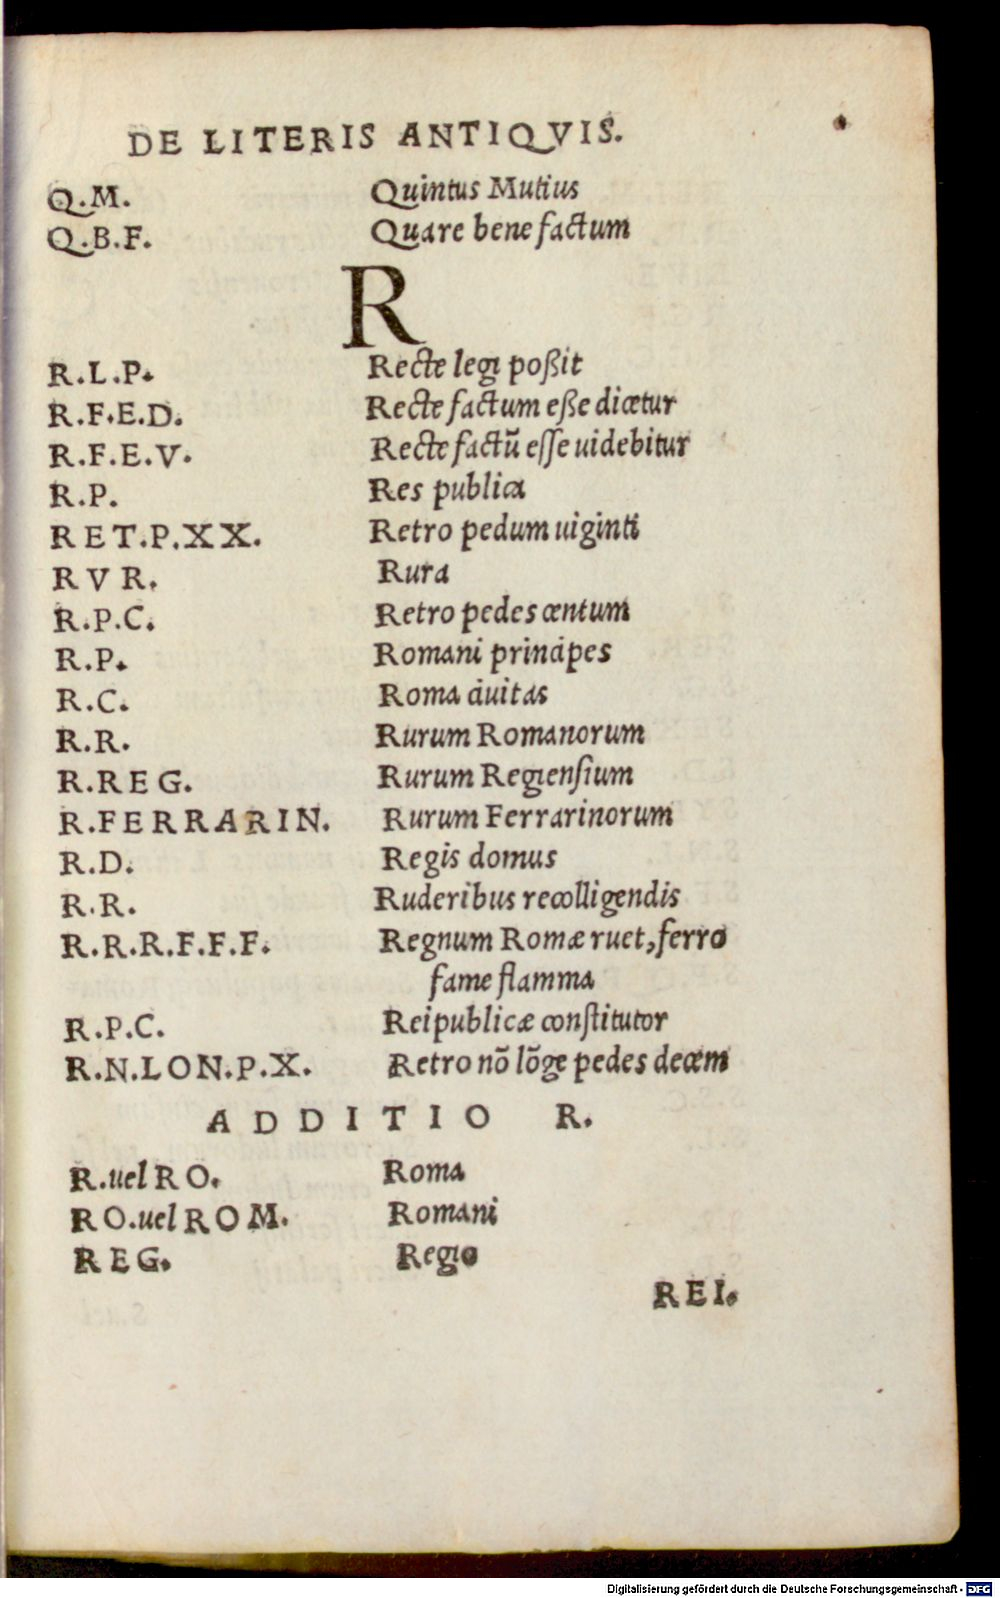 DE LITERIS ANTIQVIS.
Q.M. Quintus Mutius
Q.B.F. Quare bene factum
R
R.L.P. Recte legi poßit
R.F.E.D. Recte factum eße dicetur
R.F.E.V. Recte factū eſſe uidebitur
R.P. Res publica
RET.P.XX. Retro pedum uiginti
RVR. Rura
R.P.C. Retro pedes centum
R.P. Romani principes
R.C. Roma ciuitas
R.R. Rurum Romanorum
R.REG. Rurum Regienſium
R.FERRARIN. Rurum Ferrarinorum
R.D. Regis domus
R.R. Ruderibus recolligendis
R.R.R.F.F.F. Regnum Romæ ruet, ferro
fame flamma
R.P.C. Reipublicæ conſtitutor
R.N.LON.P.X. Retro nō lōge pedes decem
ADDITIO R.
R.uel RO. Roma
RO.uel ROM. Romani
REG. Regio
REI.
Digitalisierung gefördert durch die Deutsche Forschungsgemeinschaft - DFG